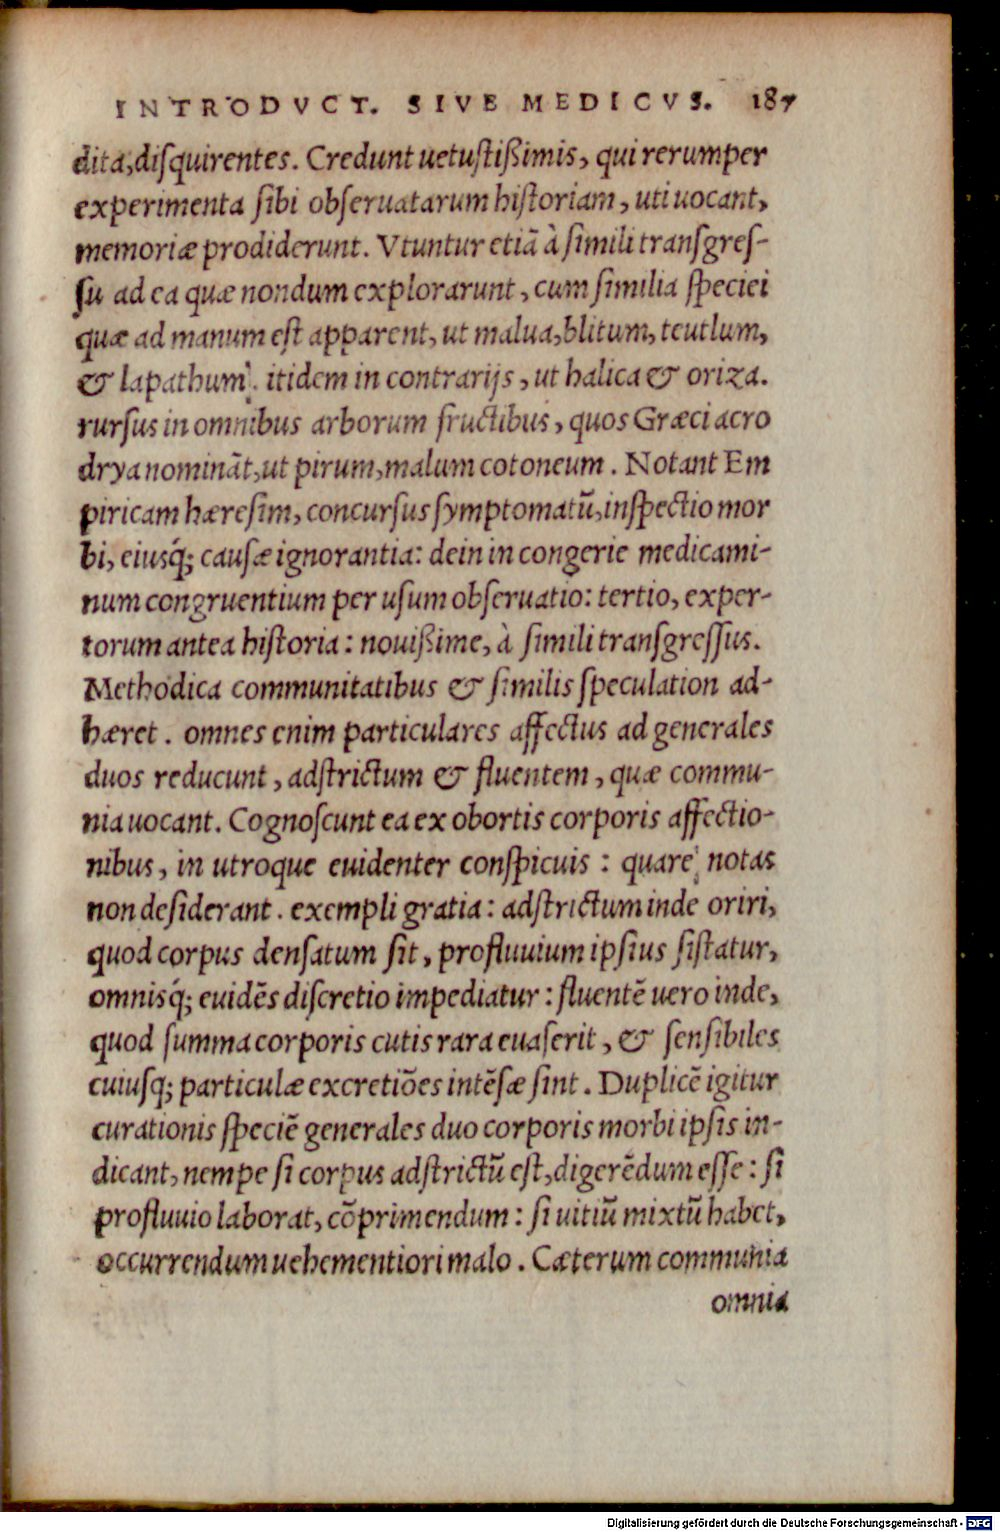 INTRODVCT. SIVE MEDICVS. 187
dita, disquirentes. Credunt uetustißimis, qui rerum per
experimenta sibi obseruatarum historiam, uti uocant,
memoriæ prodiderunt. Vtuntur etiā à simili transgres-
su ad ea quæ nondum explorarunt, cum similia speciei
quæ ad manum est apparent, ut malua, blitum, teutlum,
& lapathum. itidem in contrarijs, ut halica & oriza.
rursus in omnibus arborum fructibus, quos Græci acro
drya nomināt, ut pirum, malum cotoneum. Notant Em
piricam hæresim, concursus symptomatū, inspectio mor
bi, eiusq́; causæ ignorantia: dein in congerie medicami-
num congruentium per usum obseruatio: tertio, exper-
torum antea historia: nouißime, à simili transgressus.
Methodica communitatibus & similis speculation ad-
hæret. omnes enim particulares affectus ad generales
duos reducunt, adstrictum & fluentem, quæ commu-
nia uocant. Cognoscunt ea ex obortis corporis affectio-
nibus, in utroque euidenter conspicuis: quare notas
non desiderant. exempli gratia: adstrictum inde oriri,
quod corpus densatum sit, profluuium ipsius sistatur,
omnisq́; euidēs discretio impediatur: fluentē uero inde,
quod summa corporis cutis rara euaserit, & sensibiles
cuiusq; particulæ excretiōes intēsæ sint. Duplicē igitur
curationis speciē generales duo corporis morbi ipsis in-
dicant, nempe si corpus adstrictū est, digerēdum esse: si
profluuio laborat, cōprimendum: si uitiū mixtū habet,
occurrendum uehementiori malo. Cæterum communia
omnia
Digitalisierung gefördert durch die Deutsche Forschungsgemeinschaft - DFG